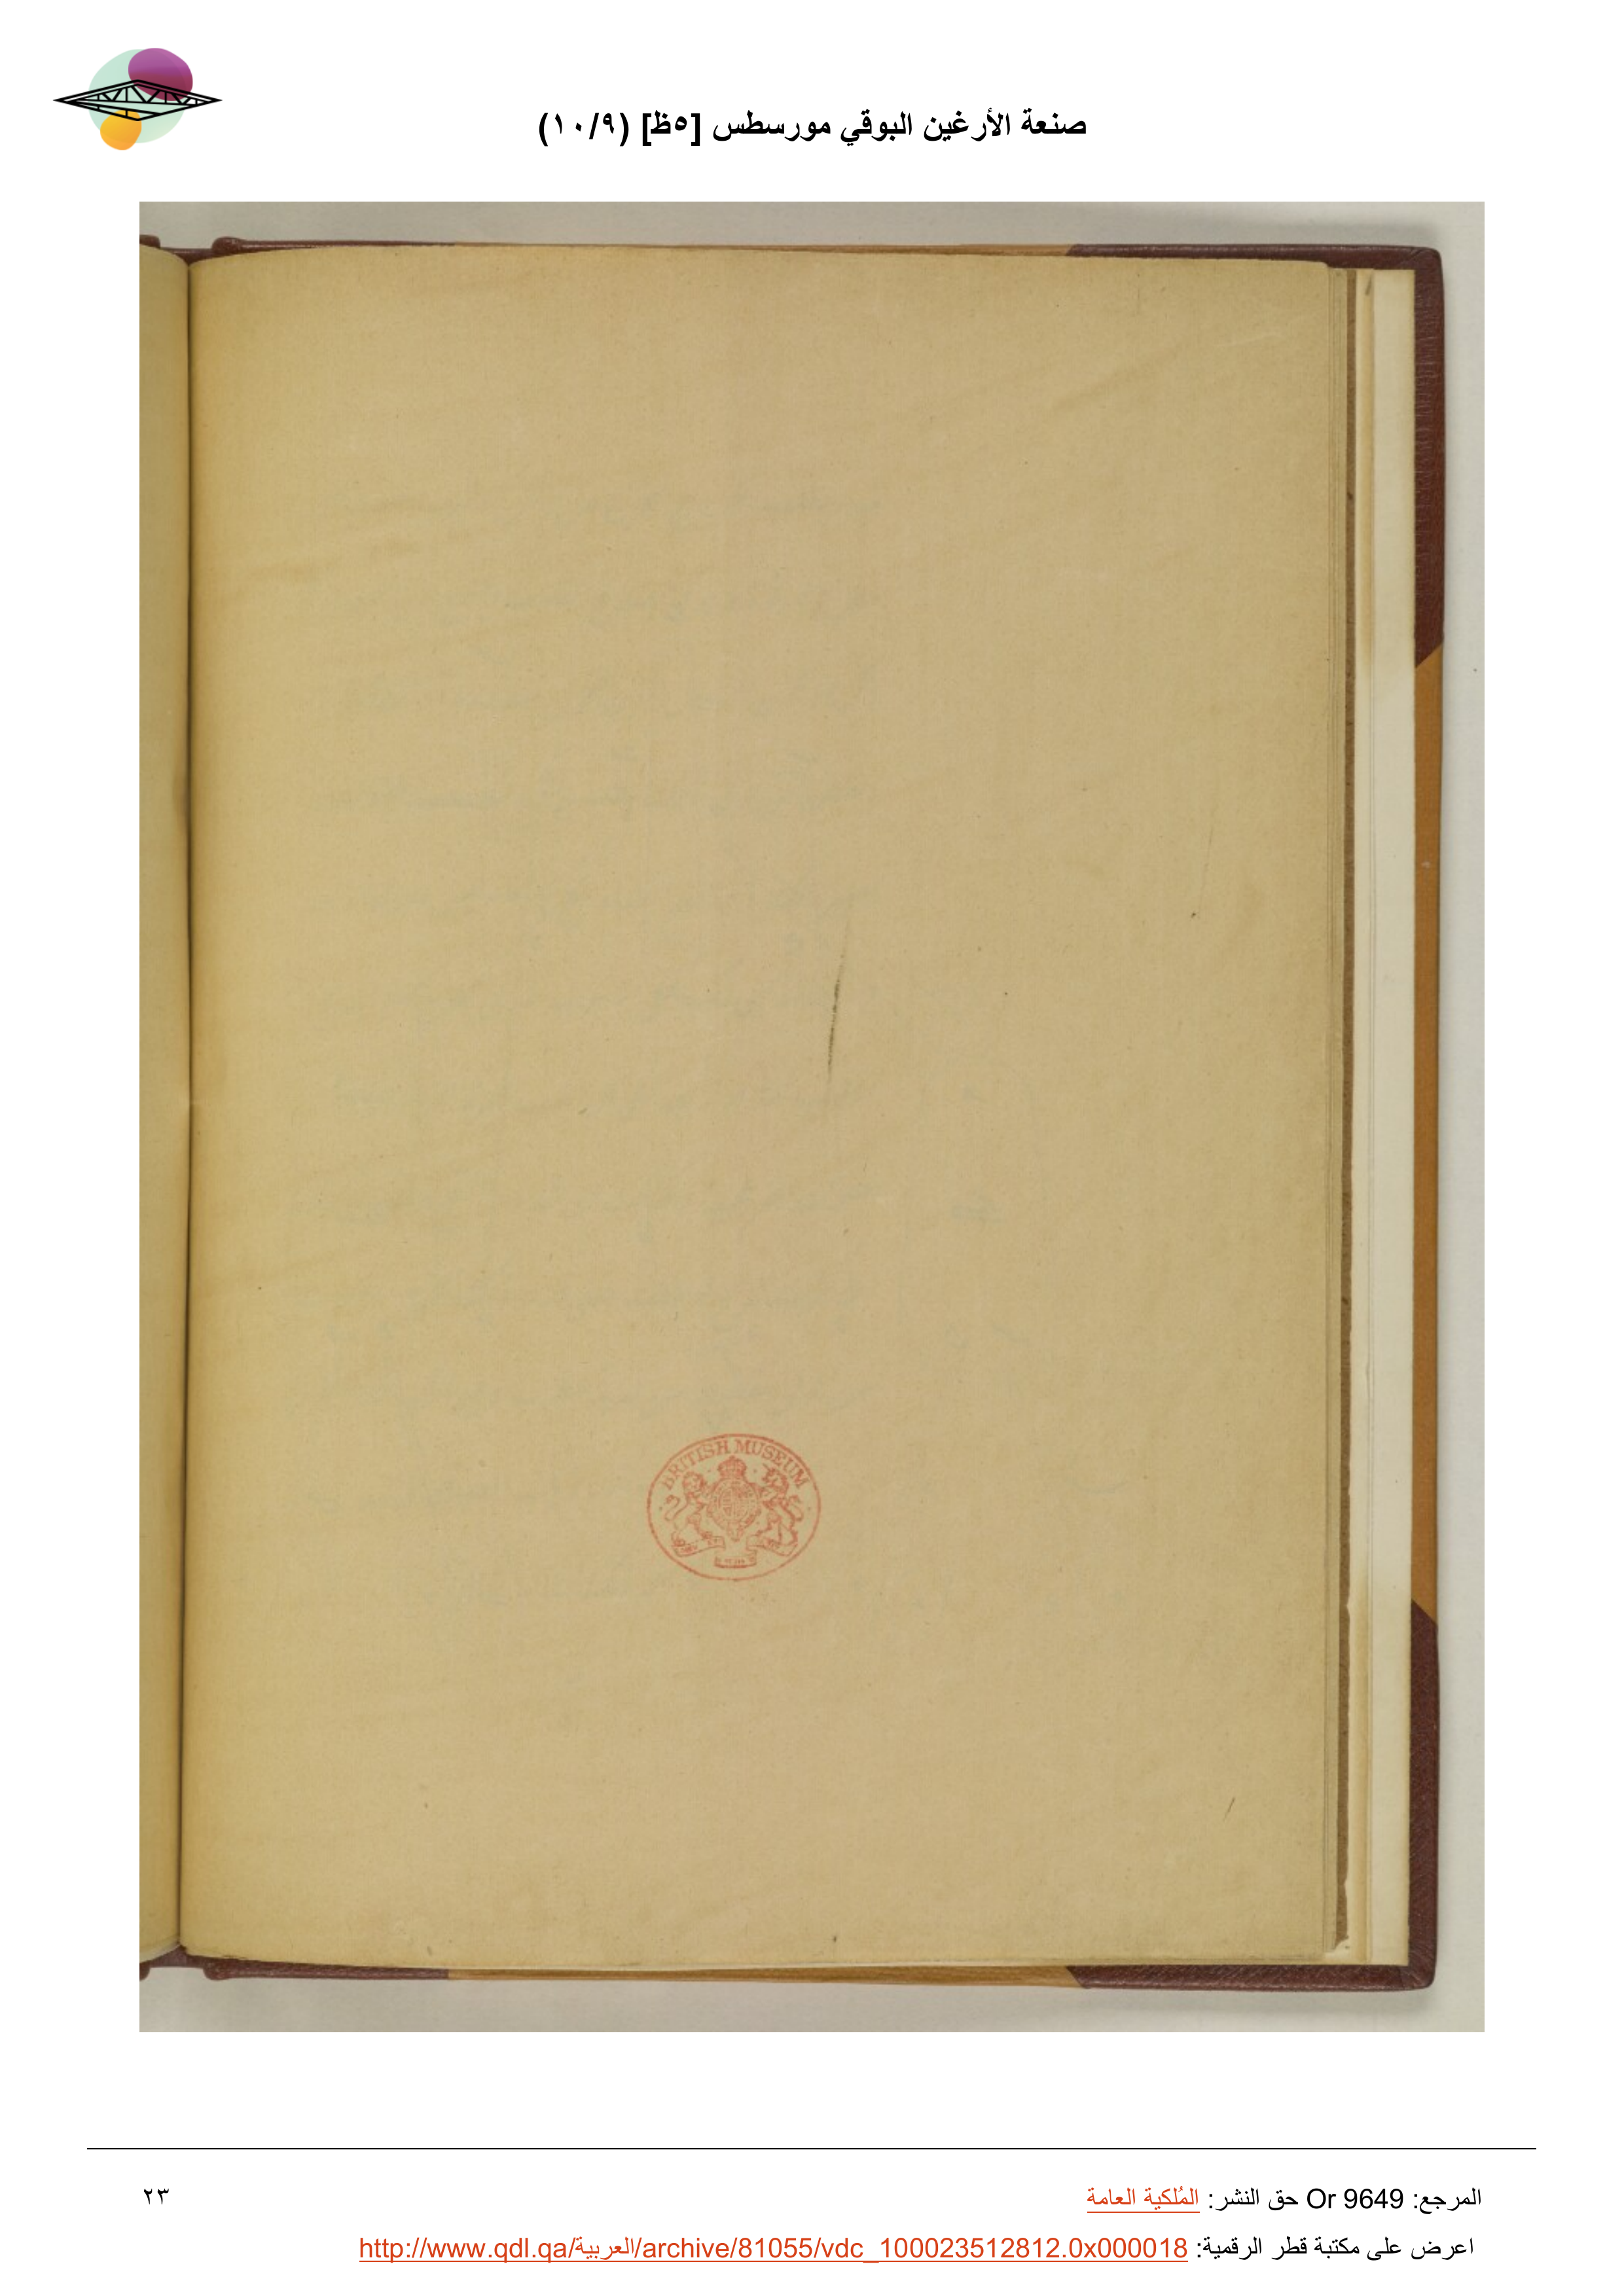 صنعة الأرغين البوقي مورسطس [٥ظ] (١٠/٩)
BRITISH MUSEUM
المرجع: Or 9649 حق النشر: المُلكية العامة
٢٣
اعرض على مكتبة قطر الرقمية: http://www.qdl.qa/العربية/archive/81055/vdc_100023512812.0x000018